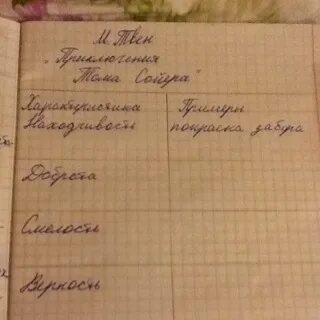 М. Твен
„Приключения
Тома Сойера"
Характеристика
Примеры
Находчивость
покраска забора
Доброта
Смелость
Верность